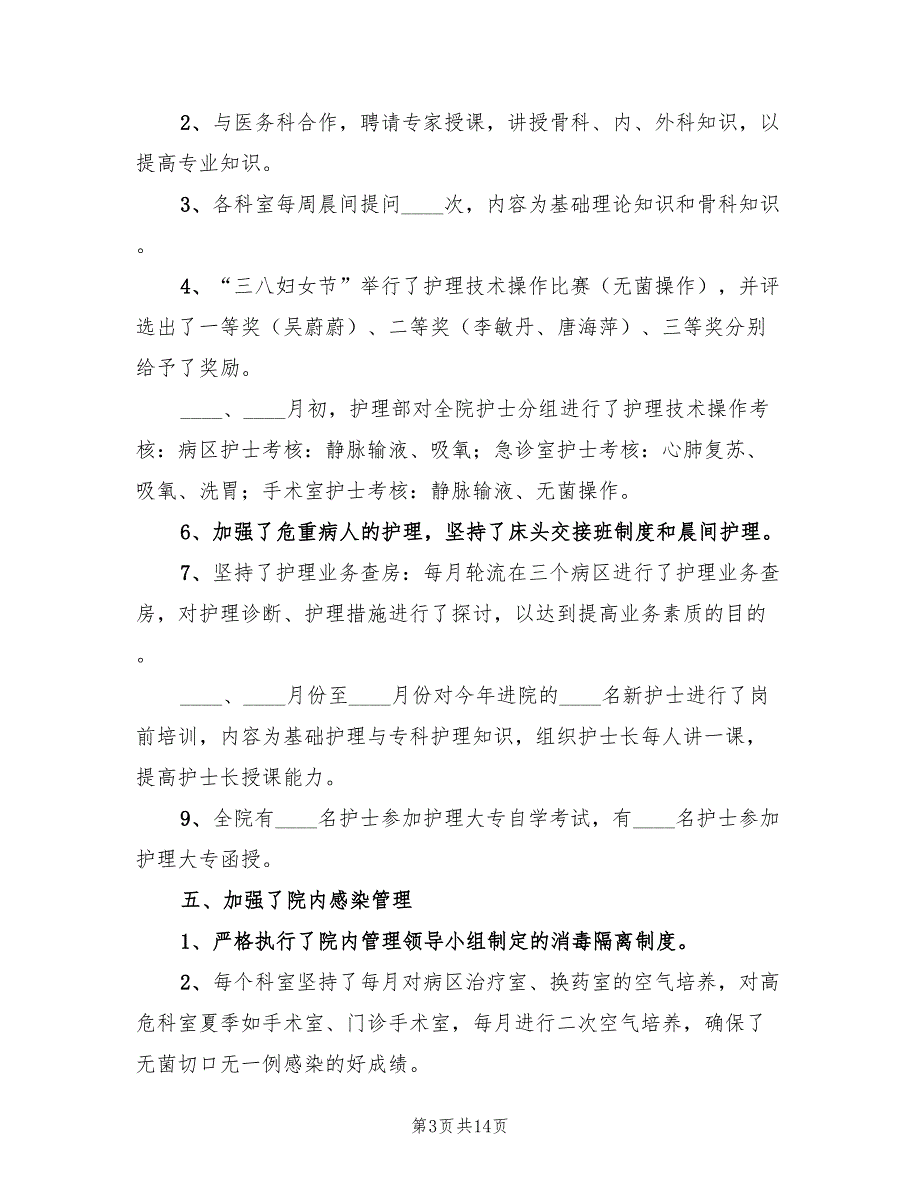 2、与医务科合作，聘请专家授课，讲授骨科、内、外科知识，以
提高专业知识。
3、各科室每周晨间提问____次，内容为基础理论知识和骨科知识
。
4、“三八妇女节”举行了护理技术操作比赛（无菌操作），并评
选出了一等奖（吴蔚蔚）、二等奖（李敏丹、唐海萍）、三等奖分别
给予了奖励。
____、____月初，护理部对全院护士分组进行了护理技术操作考
核：病区护士考核：静脉输液、吸氧；急诊室护士考核：心肺复苏、
吸氧、洗胃；手术室护士考核：静脉输液、无菌操作。
6、加强了危重病人的护理，坚持了床头交接班制度和晨间护理。
7、坚持了护理业务查房：每月轮流在三个病区进行了护理业务查
房，对护理诊断、护理措施进行了探讨，以达到提高业务素质的目的
。
____、____月份至____月份对今年进院的____名新护士进行了岗
前培训，内容为基础护理与专科护理知识，组织护士长每人讲一课，
提高护士长授课能力。
9、全院有____名护士参加护理大专自学考试，有____名护士参加
护理大专函授。
五、加强了院内感染管理
1、严格执行了院内管理领导小组制定的消毒隔离制度。
2、每个科室坚持了每月对病区治疗室、换药室的空气培养，对高
危科室夏季如手术室、门诊手术室，每月进行二次空气培养，确保了
无菌切口无一例感染的好成绩。
第3页共14页